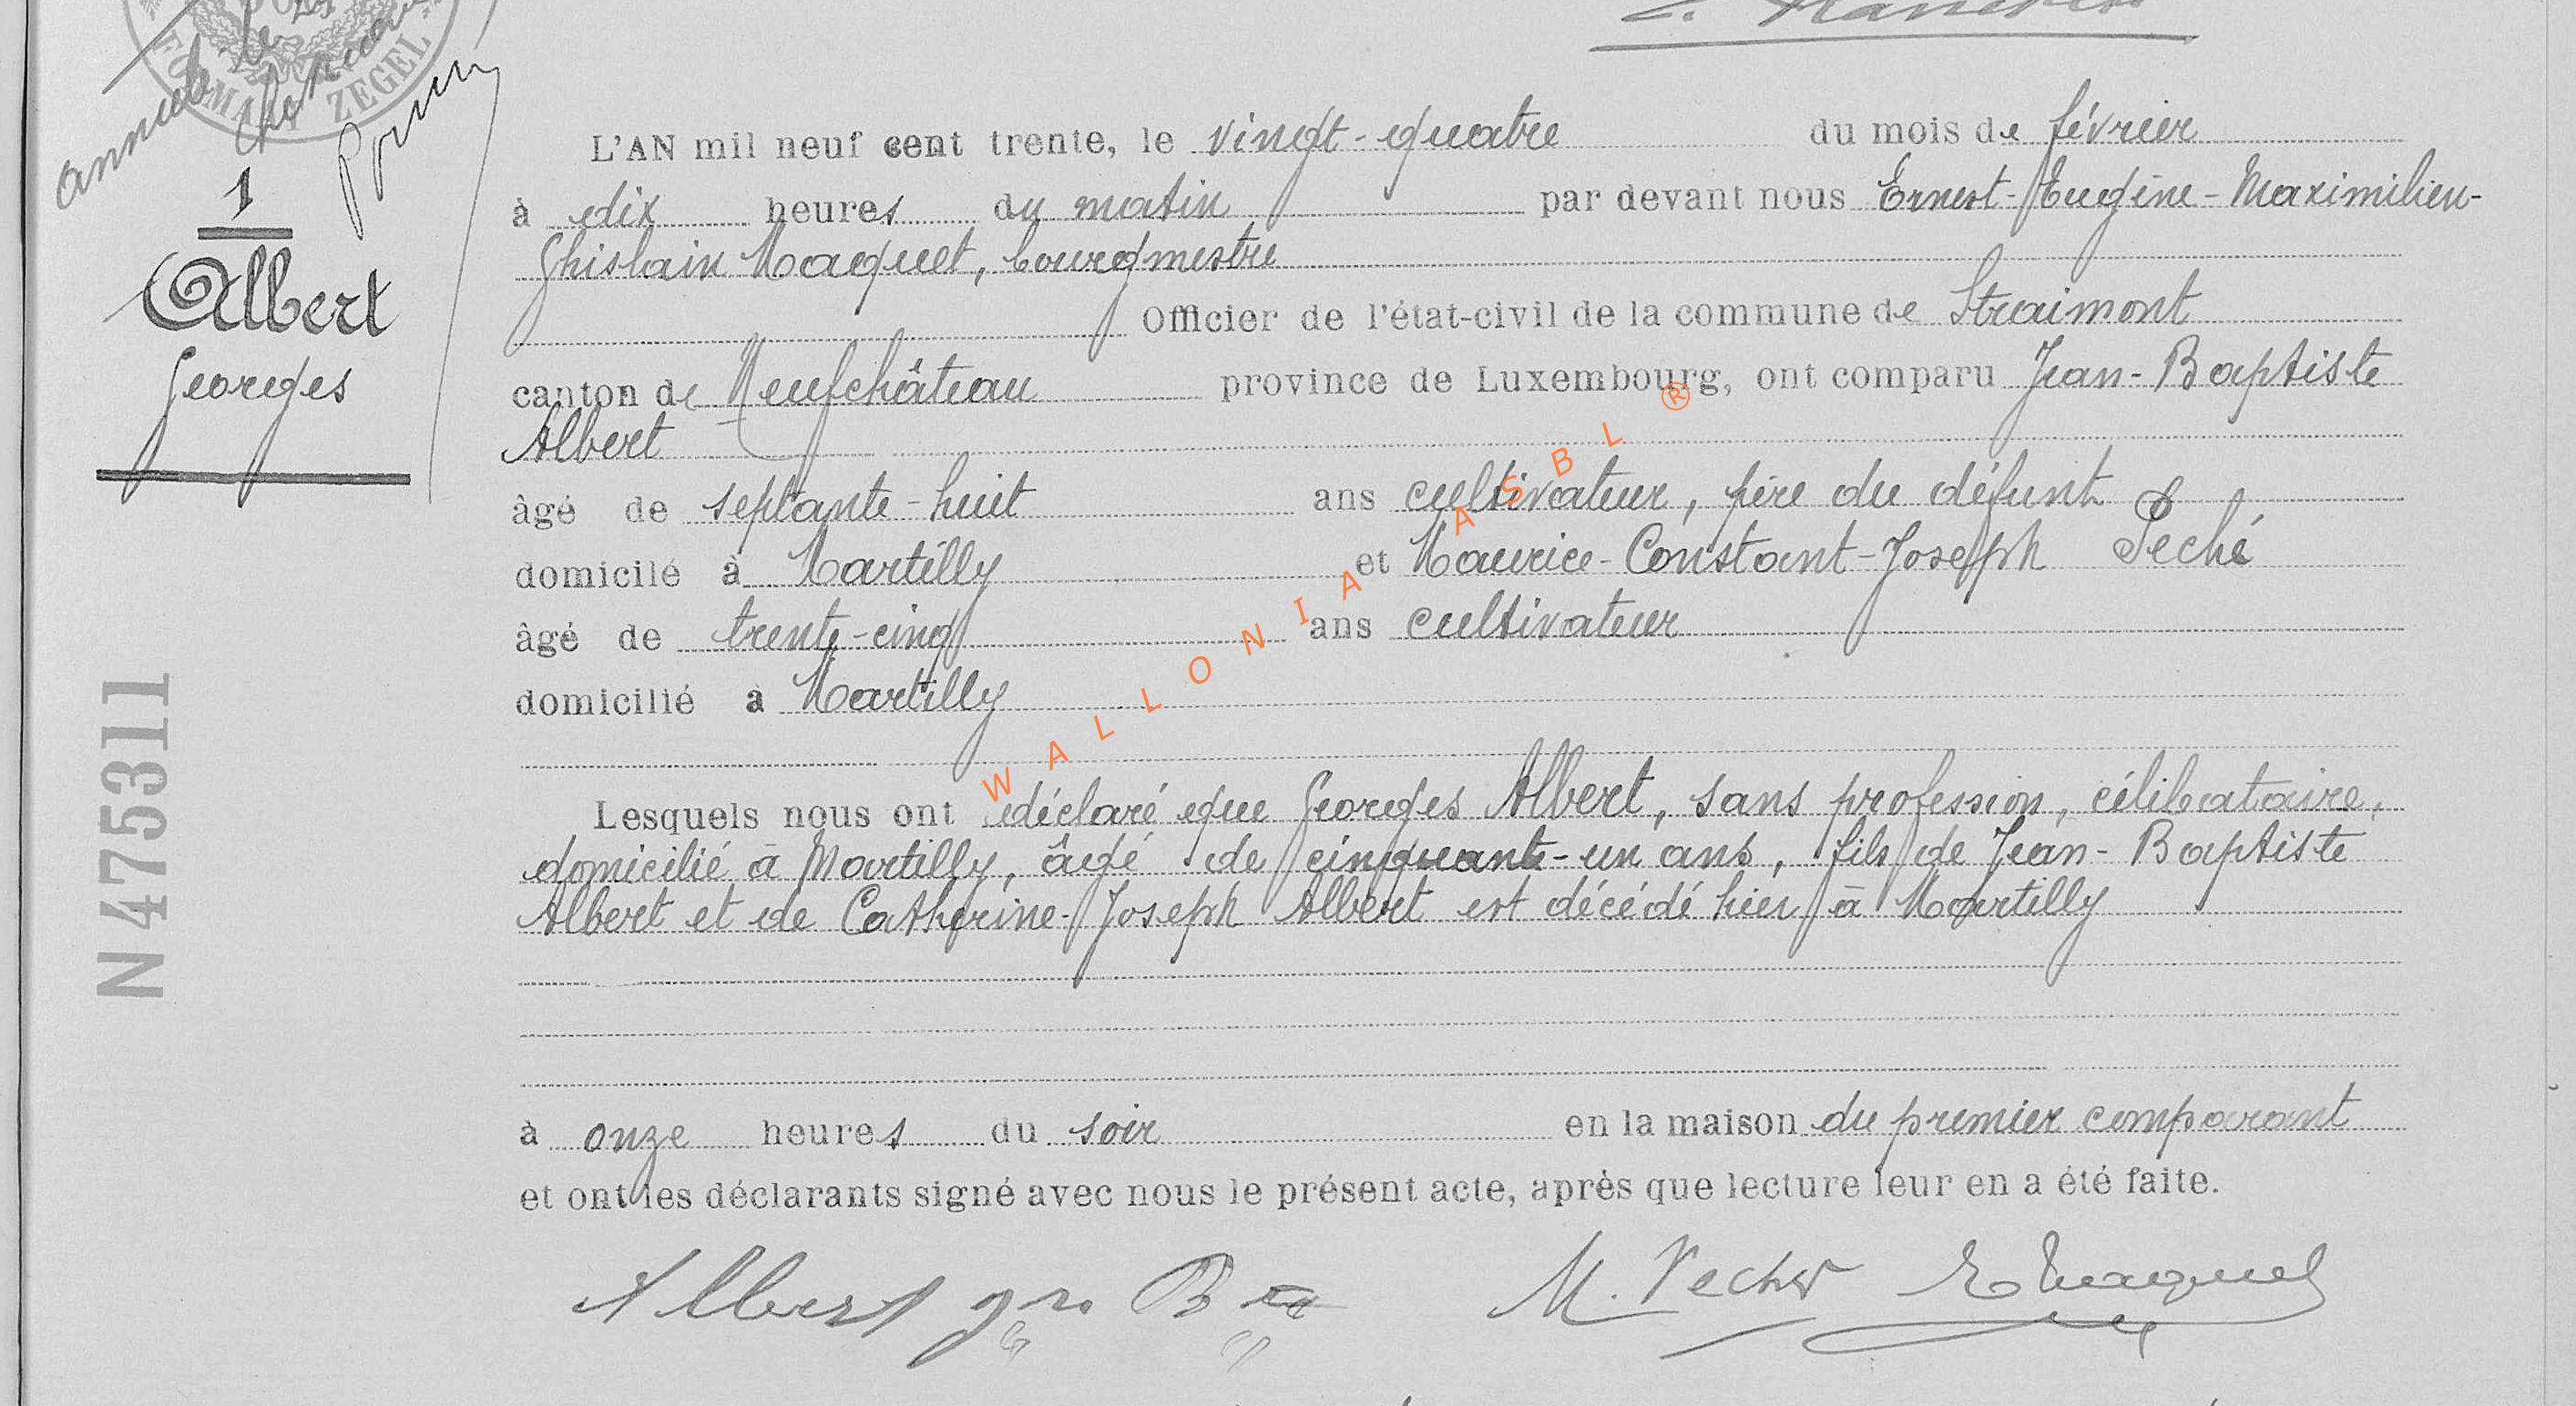 FORMAAT ZEGEL
annulé le
L'AN mil neuf cent trente, le vingt-quatre du mois de février
1
à dix heures du matin par devant nous Ernest-Eugène-Maximilien-
Ghislain Maquet, bourgmestre
Albert
Georges
Officier de l'état-civil de la commune de Straimont
canton de Neufchâteau province de Luxembourg, ont comparu Jean-Baptiste
Albert
âgé de septante-huit ans cultivateur, père du défunt
domicilé à Martilly et Maurice-Constant-Joseph Peché
âgé de trente-cinq ans cultivateur
domicilié à Martilly
N 475311
WALLONIA ASBL ®
Lesquels nous ont déclaré que Georges Albert, sans profession, célibataire,
domicilié à Martilly, âgé de cinquante-un ans, fils de Jean-Baptiste
Albert et de Catherine-Joseph Albert est décédé hier à Martilly
à onze heures du soir en la maison du premier comparant
et ont les déclarants signé avec nous le présent acte, après que lecture leur en a été faite.
Albert M. Peché E Maquet